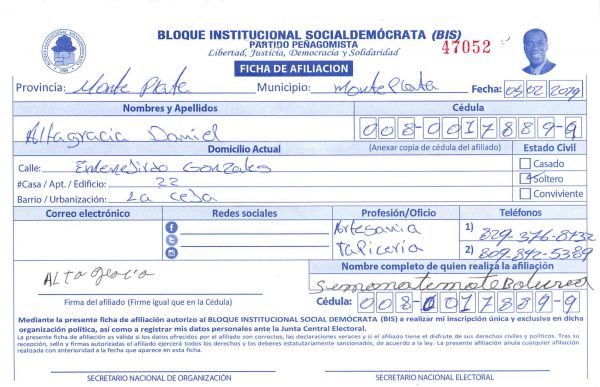 BLOQUE INSTITUCIONAL SOCIALDEMÓCRATA (BIS)
PARTIDO PEÑAGOMISTA
47052
Libertad, Justicia, Democracia y Solidaridad
FICHA DE AFILIACION
Provincia: Monte Plata Municipio: Monte Plata Fecha: 05 02 2019
Nombres y Apellidos Cédula
Altagracia Daniel 008-0017889-9
Domicilio Actual (Anexar copia de cédula del afiliado) Estado Civil
Calle: Gonzales Casado
#Casa / Apt. / Edificio: 22 Soltero
Barrio / Urbanización: La Ceja Conviviente
Correo electrónico Redes sociales Profesión/Oficio Teléfonos
Artesania 1) 829-376-8732
Tapiceria 2) 809-842-5389
Nombre completo de quien realizá la afiliación
Altagracia
Firma del afiliado (Firme igual que en la Cédula) Cédula: 008-0017889-9
Mediante la presente ficha de afiliación autorizo al BLOQUE INSTITUCIONAL SOCIAL DEMÓCRATA (BIS) a realizar mi inscripción única y exclusiva en dicha
organización política, así como a registrar mis datos personales ante la Junta Central Electoral.
La presente ficha de afiliación es válida si los datos ofrecidos por el afiliado son correctos, las declaraciones veraces y si el afiliado tiene el disfrute de sus derechos civiles y políticos. Tras su
recepción, sello y firmas autorizadas el afiliado ejercerá todos los derechos y los deberes estatutariamente sancionados, de acuerdo a la ley. La presente afiliación anula cualquier afiliación
realizada con anterioridad a la fecha que aparece en esta ficha.
SECRETARIO NACIONAL DE ORGANIZACIÓN SECRETARIO NACIONAL ELECTORAL